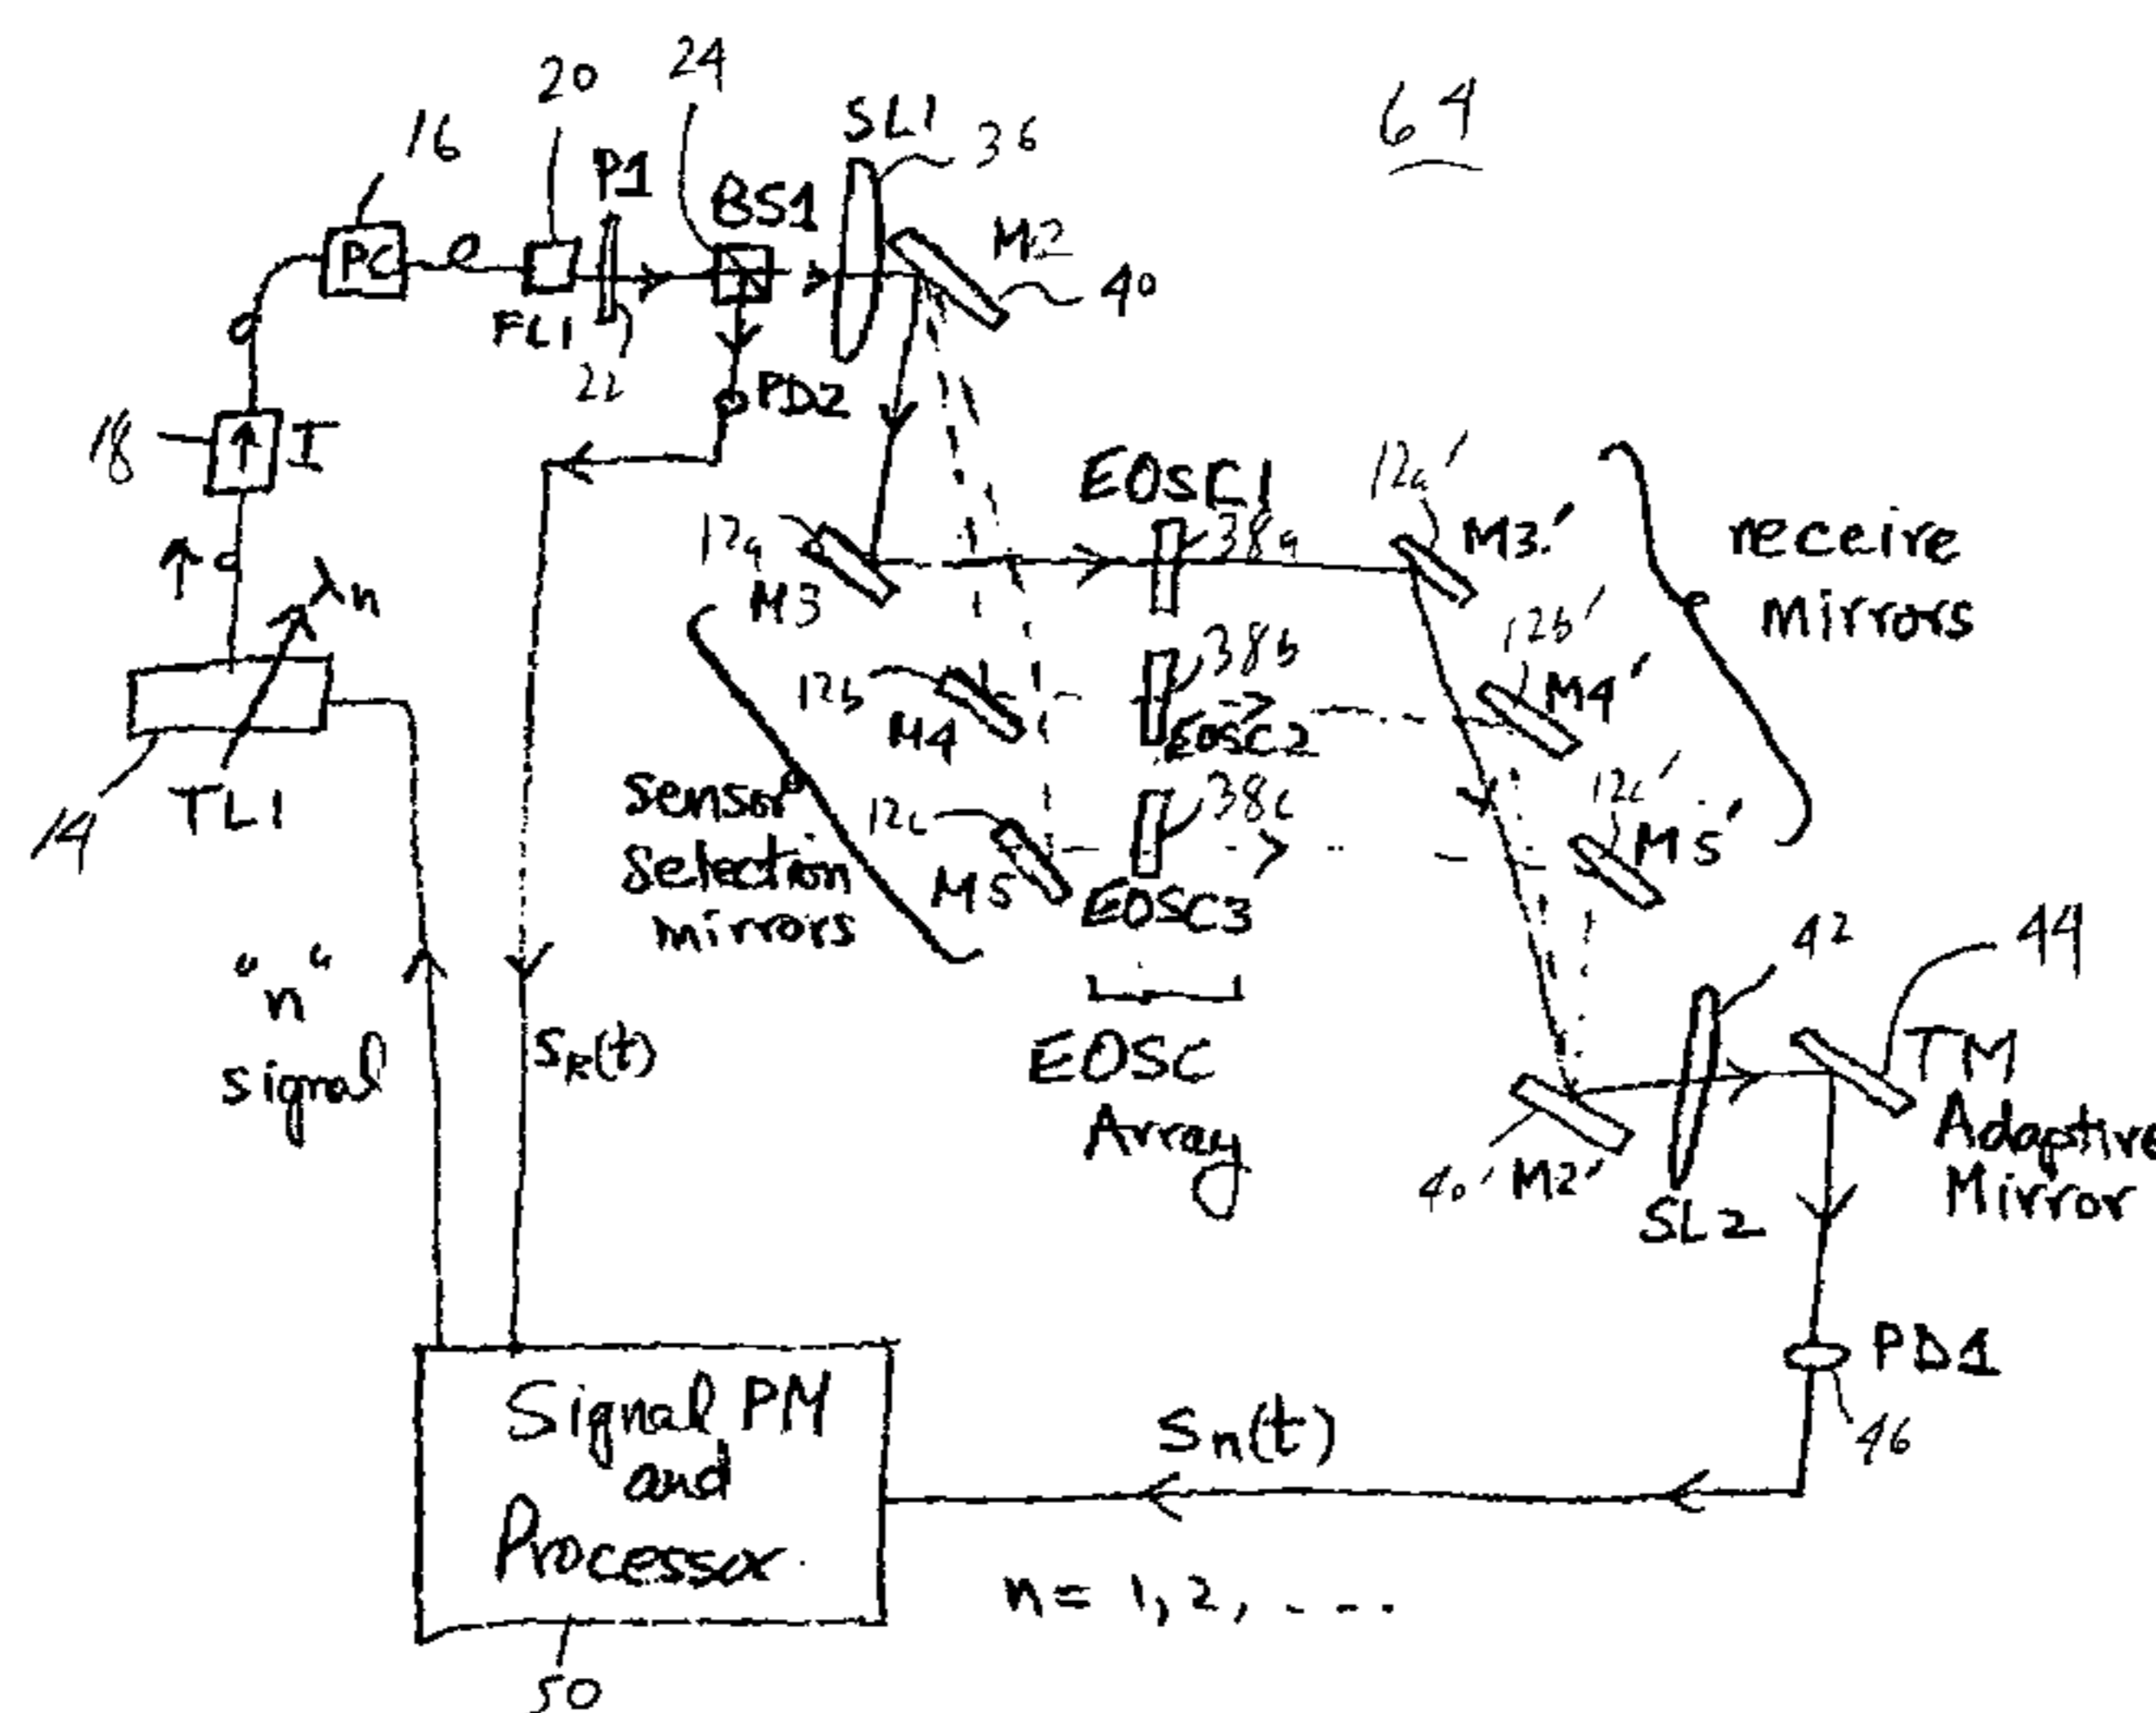 20
24
64
16
SL1
36
P1
BS1
M2
PC
40
FL1
22
PD2
18
I
EOSC1
12a'
M3'
receive
Mirrors
12a
38a
M3
λn
12b'
38b
M4'
12b
M4
EOSC2
12c'
M5'
TL1
14
Sensor
Selection
mirrors
12c
38c
M5
EOSC3
42
44
"n"
signal
SR(t)
EOSC
Array
TM
Adaptive
Mirror
40'
M2'
SL2
PD1
46
Signal PM
and
Processor
Sn(t)
n = 1, 2, - - - -
50